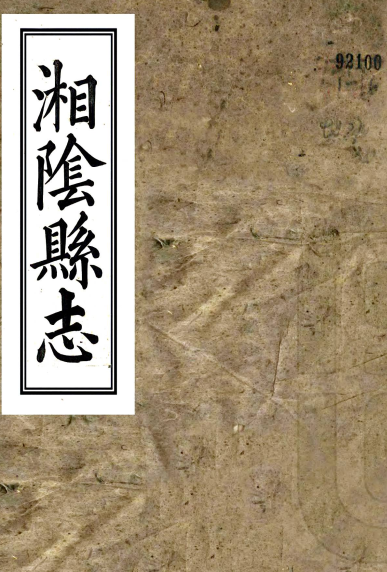 湘陰縣志
92100